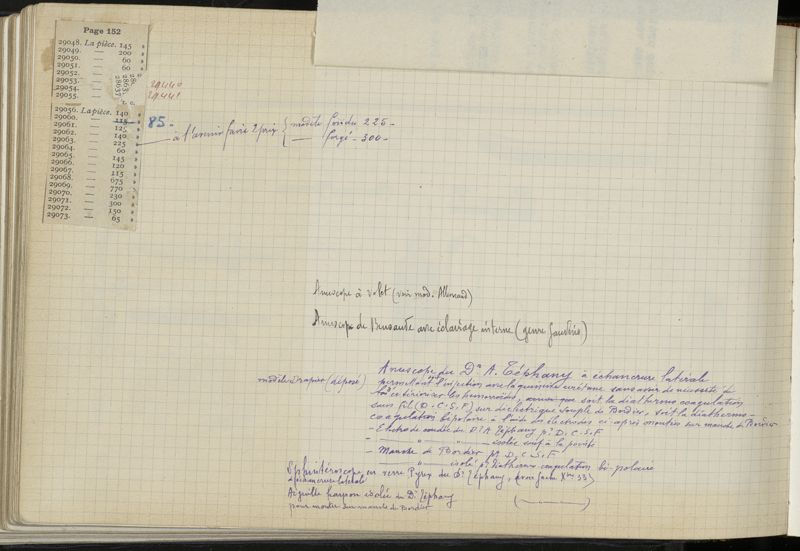 Page 152
29048. La pièce. 145 »
29049. — 200 »
29050. — 60 »
29051. — 60 »
29052. —
29053. —
29054. —
29055. —
29440
29441
29056. La pièce. 140 »
29060. — 115 » 85 -
29061. — 125 »
29062. — 140 »
29063. — 225 » à l'avenir faire 2 prix { modèle fondu 225 -
— forgé - 300 -
29064. — 60 »
29065. — 145 »
29066. — 120 »
29067. — 115 »
29068. — 675 »
29069. — 770 »
29070. — 230 »
29071. — 300 »
29072. — 150 »
29073. — 65 »
Anuscope à volet (voir mod. Allemand)
Anuscope de Bensaude avec éclairage interne (genre
modèle Drapier (déposé)
Anuscope du Dr A. Téphany à échancrure latérale
permettant l'injection avec la quinine urétane sans avoir de nécessité à
extérioriser les hémorroïdes, soit la diathermo coagulation
sans fil (D.C.S.F) sur électrique souple de Bordier, soit la diathermo-
coagulation bipolaire à l'aide des électrodes ci-après montées sur manche de Bordier
- Electrode coudée du Dr A Téphany pr D.C.S.F
- " " " — isolée sauf à la pointe
- Manche de Bordier pr D.C.S.F
- — " — isolé pr diathermo coagulation bi-polaire
Sphinctéroscope en verre Pyrex du Dr Téphany,
à échancrure latérale
Aiguille harpon isolée du Dr Téphany (————)
pour monter sur manche de Bordier